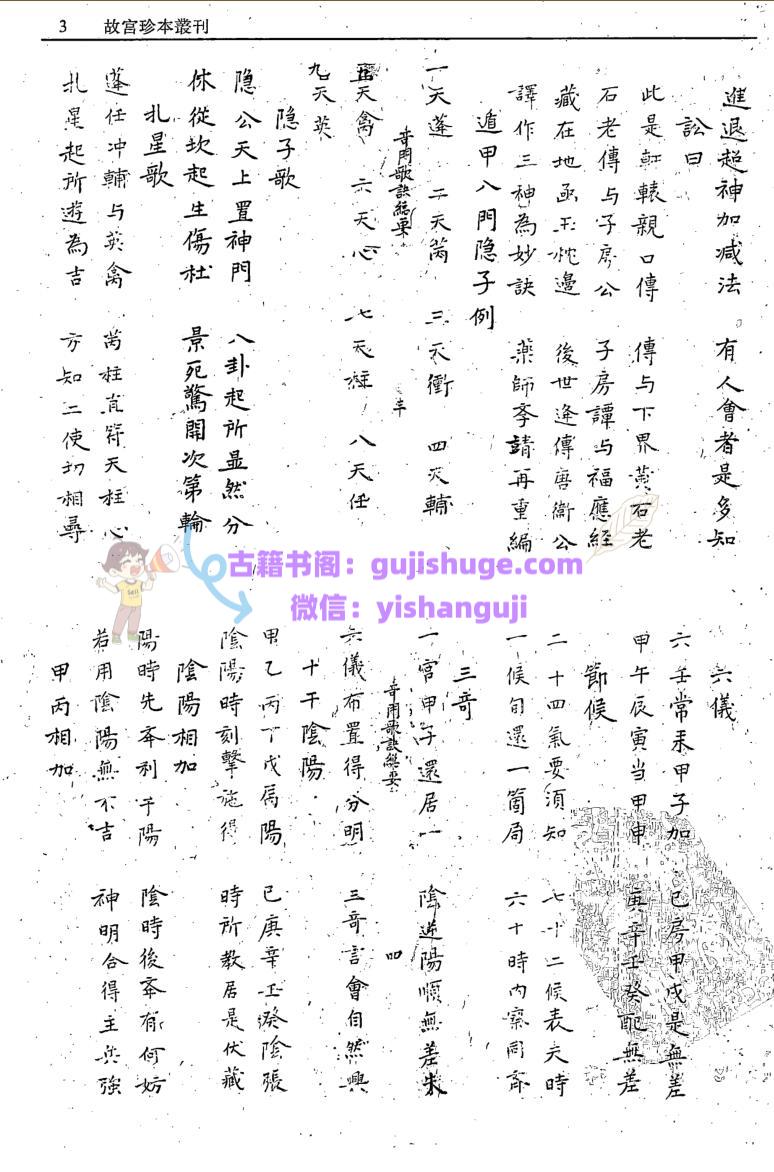 3 故宮珍本叢刊
進退超神加减法 有人會者是多知
訟曰
此是軒轅親口傳 傳与下界黄石老
石老傳与子房公 子房譚与福應経
藏在地函玉枕邊 後世逄傳唐衞公
譯作三神為妙訣 薬師李靖再重編
遁甲八門隐子例
一天蓬 二天芮 三天衝 四天輔
奇用歌訣総要 三
五天禽 六天心 七天柱 八天任
九天英
隐子歌
隐公天上置神門 八卦起所显然分
休從坎起生傷杜 景死驚開次第輪
扎星歌
蓬任冲輔与英禽 芮柱直符天柱心
扎星起所遊為吉 方知二使切相尋
六儀
六壬常来甲子加 己房甲戌是無差
甲午辰寅当甲申 庚辛壬癸配無差
節候
二十四氣要須知 七十二候表天時
一候旬還一箇局 六十時内察同斉
三竒
一宮甲子還居一 陰逆陽順無差朱
奇用歌訣総要 四
六儀布置得分明 三竒言會自然興
十干陰陽
甲乙丙丁戊属陽 己庚辛壬癸陰張
陰陽時刻擊施得 時所教居是伏藏
陰陽相加
陽時先举利于陽 陰時後举有何妨
若用陰陽無不吉 神明合得主兵強
甲丙相加
古籍书阁：gujishuge.com
微信：yishanguji